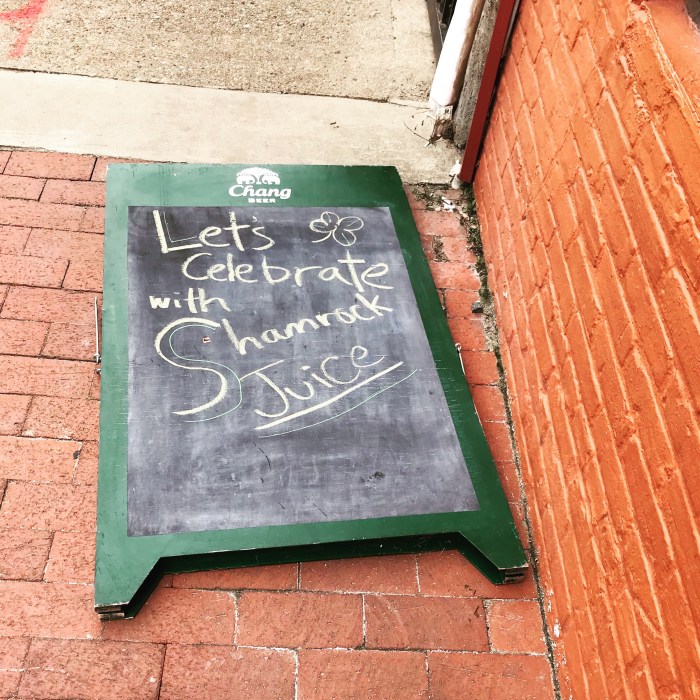 Chang
BEER
Let's
Celebrate
with
Shamrock
Juice